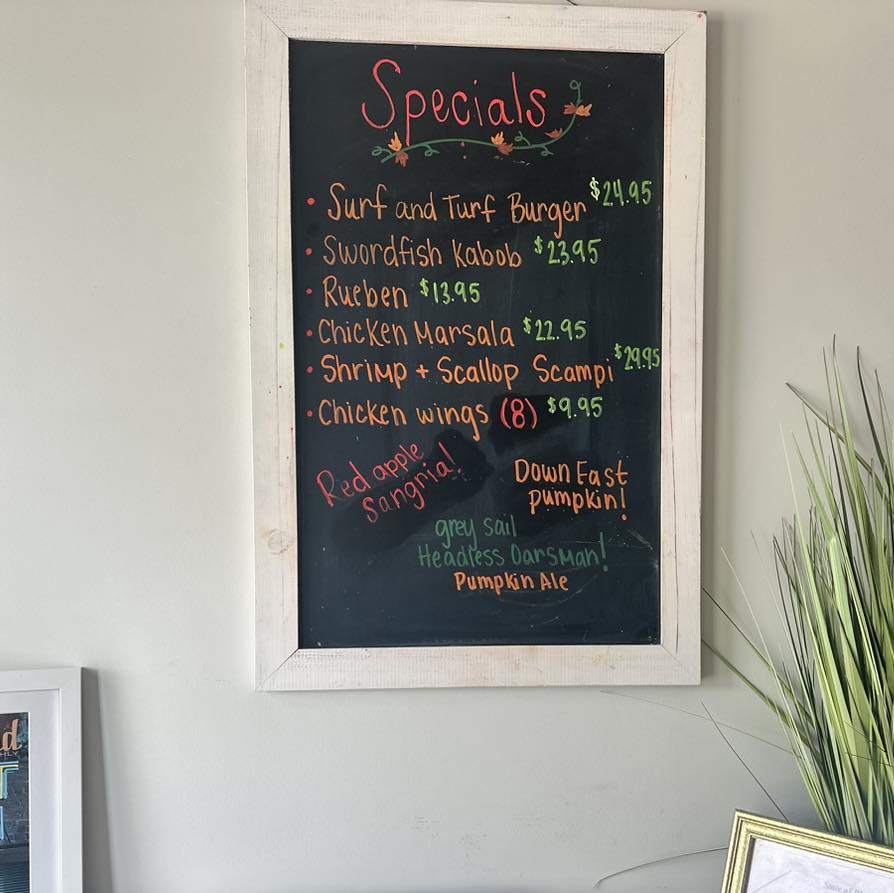 Specials
• Surf and Turf Burger $24.95
• Swordfish Kabob $23.95
• Rueben $13.95
• Chicken Marsala $22.95
• Shrimp + Scallop Scampi $29.95
• Chicken wings (8) $9.95
Red apple
Sangria!
Down East
pumpkin!
grey sail
Headless Oarsman!
Pumpkin Ale